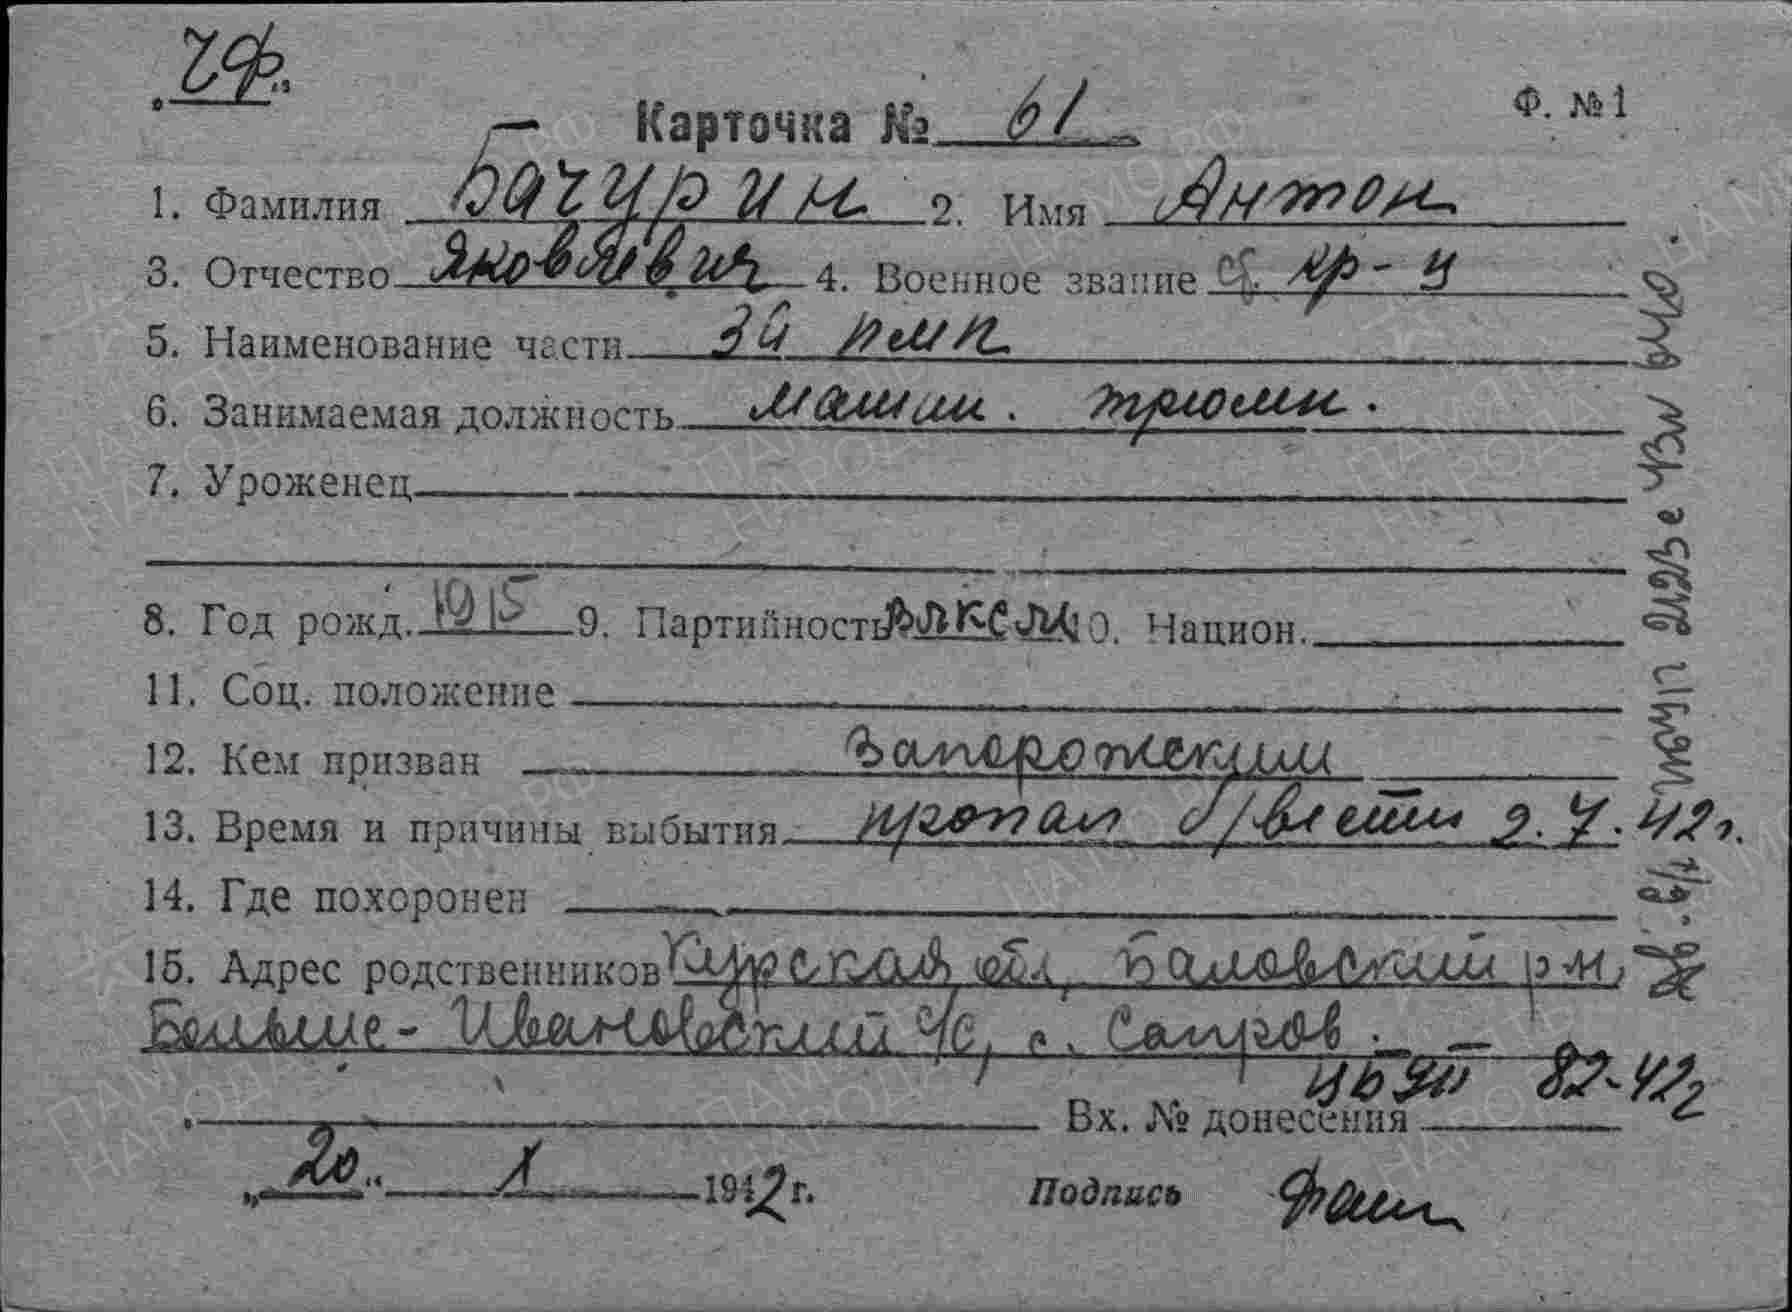 ЧФ.
Карточка № 61
Ф. №1
1. Фамилия Бачурин 2. Имя Антон
3. Отчество Яковлевич 4. Военное звание ст. кр-ц
5. Наименование части 3й пмп
6. Занимаемая должность машин. трюмн.
7. Уроженец
8. Год рожд. 1915 9. Партийность ВЛКСМ 10. Национ.
11. Соц. положение
12. Кем призван Запорожским
13. Время и причины выбытия пропал б/вести 2.7.42г.
14. Где похоронен
15. Адрес родственников Курская обл, Баловский р-н,
Больше-Ивановский с/с, с.
Вх. № донесения 82-42г
„20" X 1942г.
Подпись